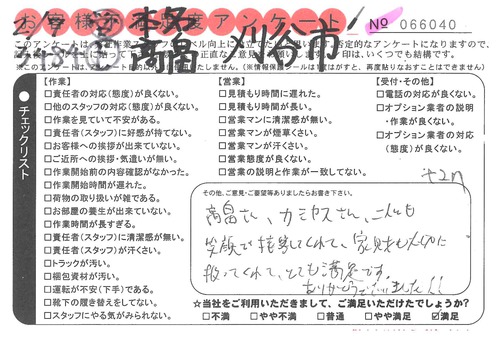 お客様満足度アンケート
No 066040
高畠
刈谷市
チェックリスト
【作業】
□責任者の対応(態度)が良くない。
□他のスタッフの対応(態度)が良くない。
□作業を見ていて不安がある。
□責任者(スタッフ)に好感が持てない。
□お客様への挨拶が出来ていない。
□ご近所への挨拶・気遣いが無い。
□作業開始前の内容確認がなかった。
□作業開始時間が遅れた。
□荷物の取り扱いが雑である。
□お部屋の養生が出来ていない。
□作業時間が長すぎる。
□責任者(スタッフ)に清潔感が無い。
□責任者(スタッフ)が汗くさい。
□トラックが汚い。
□梱包資材が汚い。
□運転が不安(下手)である。
□靴下の履き替えをしてない。
□スタッフにやる気がみられない。
【営業】
□見積もり時間に遅れた。
□見積もり時間が長い。
□営業マンに清潔感が無い。
□営業マンが煙草くさい。
□営業マンが汗くさい。
□営業態度が良くない。
□営業の説明と作業が一致してない。
【受付・その他】
□電話の対応が良くない。
□オプション業者の説明
・作業が良くない。
□オプション業者の対応
(態度)が良くない。
その他、ご意見・ご要望等ありましたらお書き下さい。
高畠さん、カミヤスさん、二人とも
笑顔で接客してくれて、家財も大切に
扱ってくれて、とても満足です。
ありがとうございました!!
☆当社をご利用いただきまして、ご満足いただけたでしょうか?
□不満 □やや不満 □普通 □やや満足 ☑満足